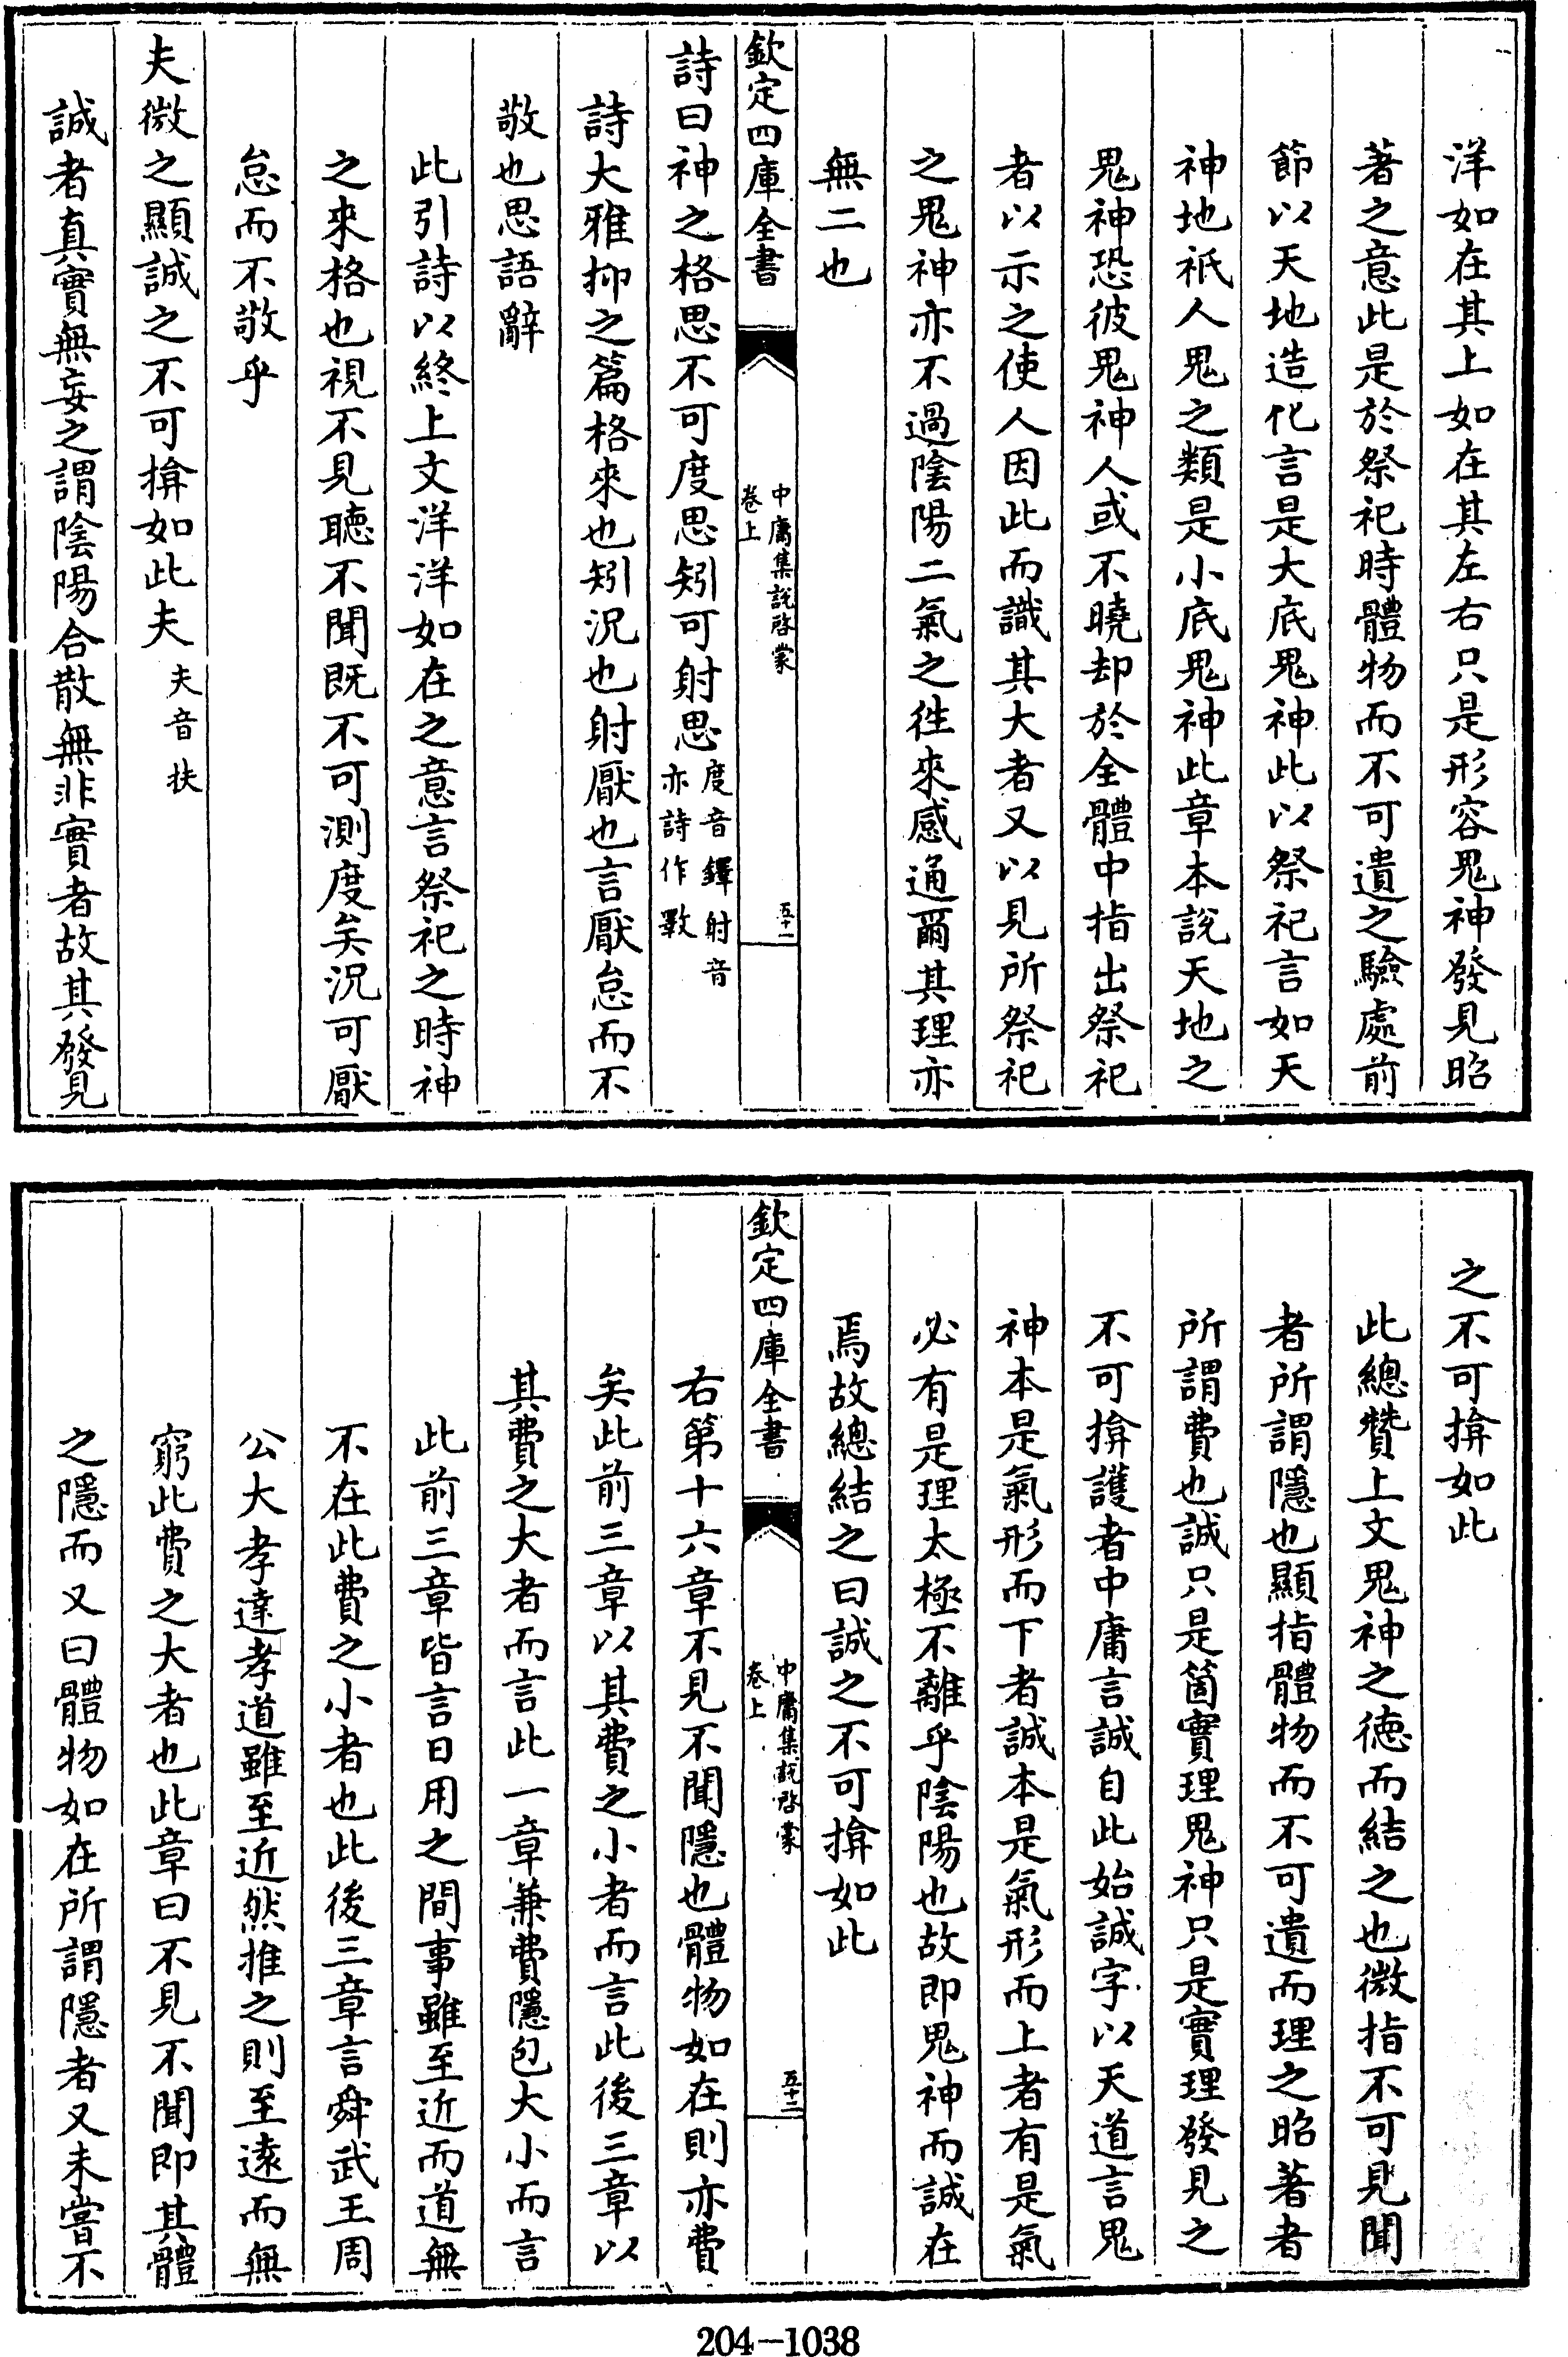 洋如在其上如在其左右只是形容鬼神發見昭
著之意此是於祭祀時體物而不可遺之驗處前
節以天地造化言是大底鬼神此以祭祀言如天
神地祇人鬼之類是小底鬼神此章本說天地之
鬼神恐彼鬼神人或不曉却於全體中指出祭祀
者以示之使人因此而識其大者又以見所祭祀
之鬼神亦不過陰陽二氣之徃來感通爾其理亦
無二也
欽定四庫全書
中庸集說啓蒙
卷上
五十一
詩曰神之格思不可度思矧可射思
度音鐸射音
亦詩作斁
詩大雅抑之篇格來也矧況也射厭也言厭怠而不
敬也思語辭
此引詩以終上文洋洋如在之意言祭祀之時神
之來格也視不見聽不聞既不可測度矣況可厭
怠而不敬乎
夫微之顯誠之不可揜如此夫
夫音扶
誠者真實無妄之謂陰陽合散無非實者故其發見
之不可揜如此
此總贊上文鬼神之德而結之也微指不可見聞
者所謂隱也顯指體物而不可遺而理之昭著者
所謂費也誠只是箇實理鬼神只是實理發見之
不可揜護者中庸言誠自此始誠字以天道言鬼
神本是氣形而下者誠本是氣形而上者有是氣
必有是理太極不離乎陰陽也故即鬼神而誠在
焉故總結之曰誠之不可揜如此
欽定四庫全書
中庸集說啓蒙
卷上
五十二
右第十六章不見不聞隱也體物如在則亦費
矣此前三章以其費之小者而言此後三章以
其費之大者而言此一章兼費隱包大小而言
此前三章皆言日用之間事雖至近而道無
不在此費之小者也此後三章言舜武王周
公大孝達孝道雖至近然推之則至遠而無
窮此費之大者也此章曰不見不聞即其體
之隱而又曰體物如在所謂隱者又未嘗不
204-1038